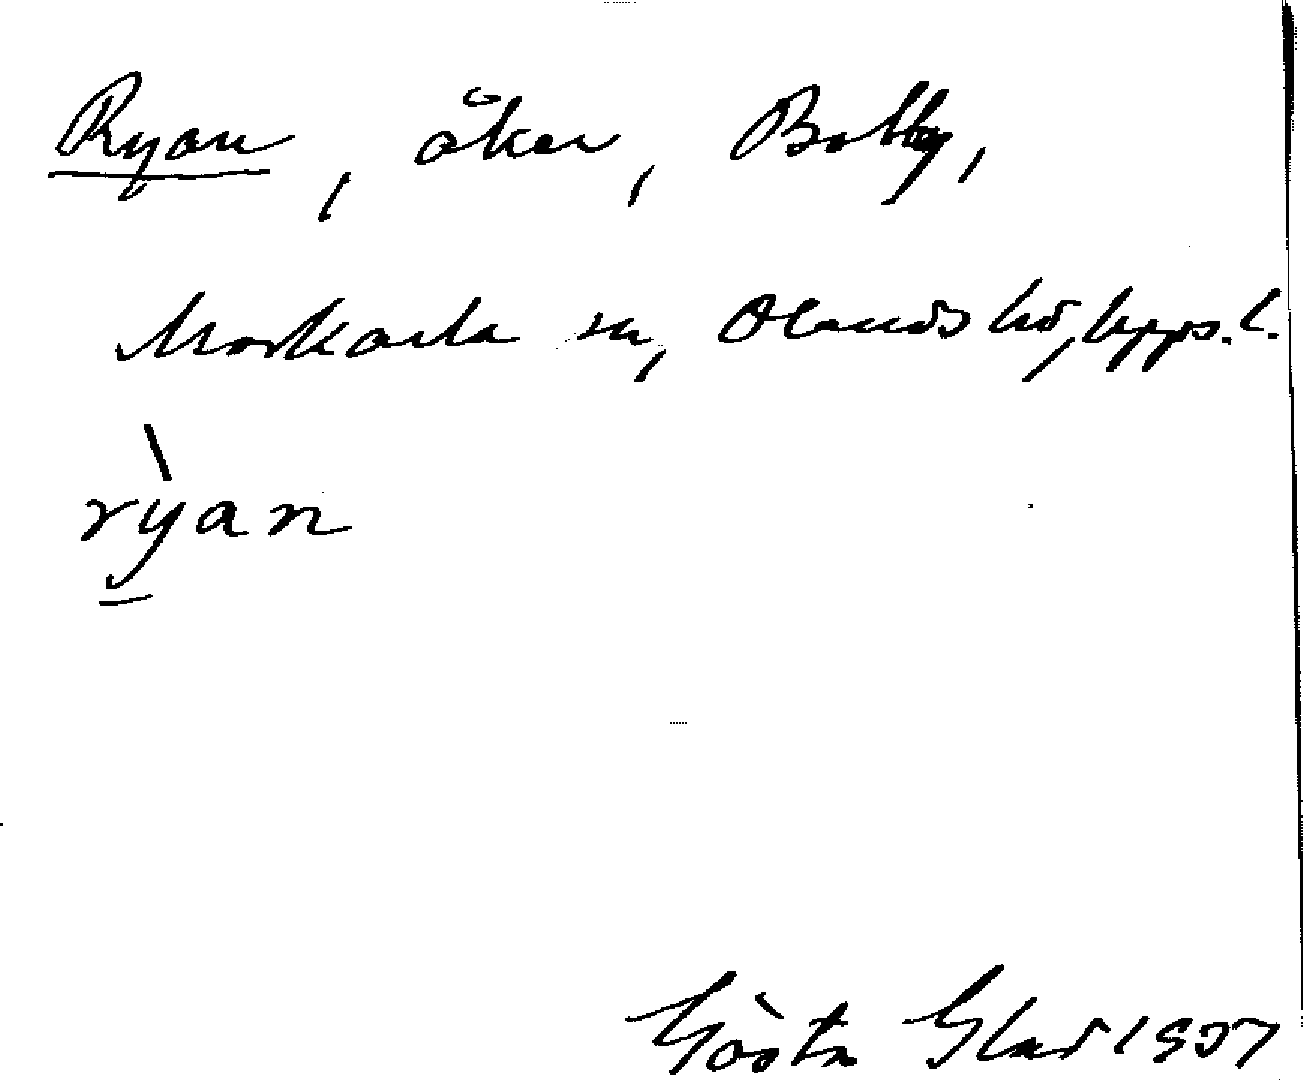 Ryan, åker, Bolby,
Morkarla sn, Olands hd, Upps. l.
rỳan
Gösta Glad 1937